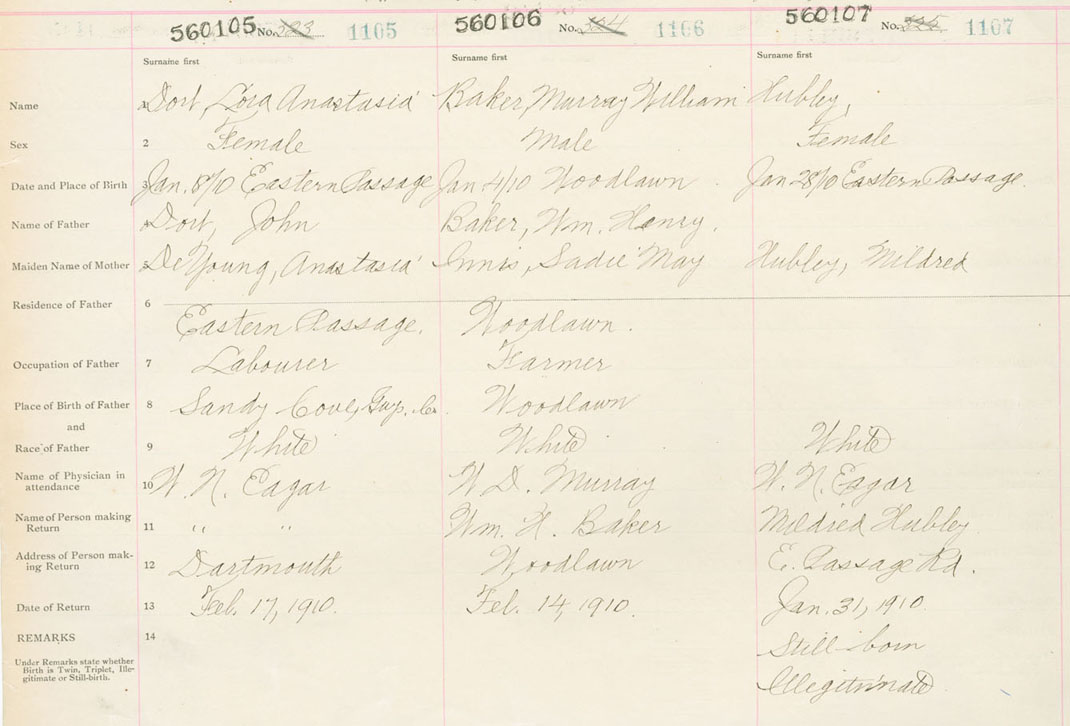 560105 No. 323 1105 560106 No. 324 1106 560107 No. 325 1107
Surname first Surname first Surname first
Name 1 Dort, Lora Anastasia Baker, Murray William Hubley,
Sex 2 Female Male Female
Date and Place of Birth 3 Jan. 8/10 Eastern Passage Jan 4/10 Woodlawn Jan 28/10 Eastern Passage.
Name of Father 4 Dort, John Baker, Wm. Henry.
Maiden Name of Mother 5 De Young, Anastasia Innis, Sadie May Hubley, Mildred
Residence of Father 6
Eastern Passage. Woodlawn.
Occupation of Father 7 Labourer Farmer
Place of Birth of Father 8 Sandy Cove, Guy. Co. Woodlawn
and
Race of Father 9 White White White
Name of Physician in
attendance 10 W. N. Eagar W D. Murray W. N. Eagar
Name of Person making
Return 11 " " Wm. H. Baker Mildred Hubley
Address of Person mak-
ing Return 12 Dartmouth Woodlawn E. Passage Rd.
Date of Return 13 Feb. 17, 1910. Feb. 14, 1910. Jan. 31, 1910
REMARKS 14 Still-born
Under Remarks state whether
Birth is Twin, Triplet, Ille-
gitimate or Still-birth.
Illegitimate